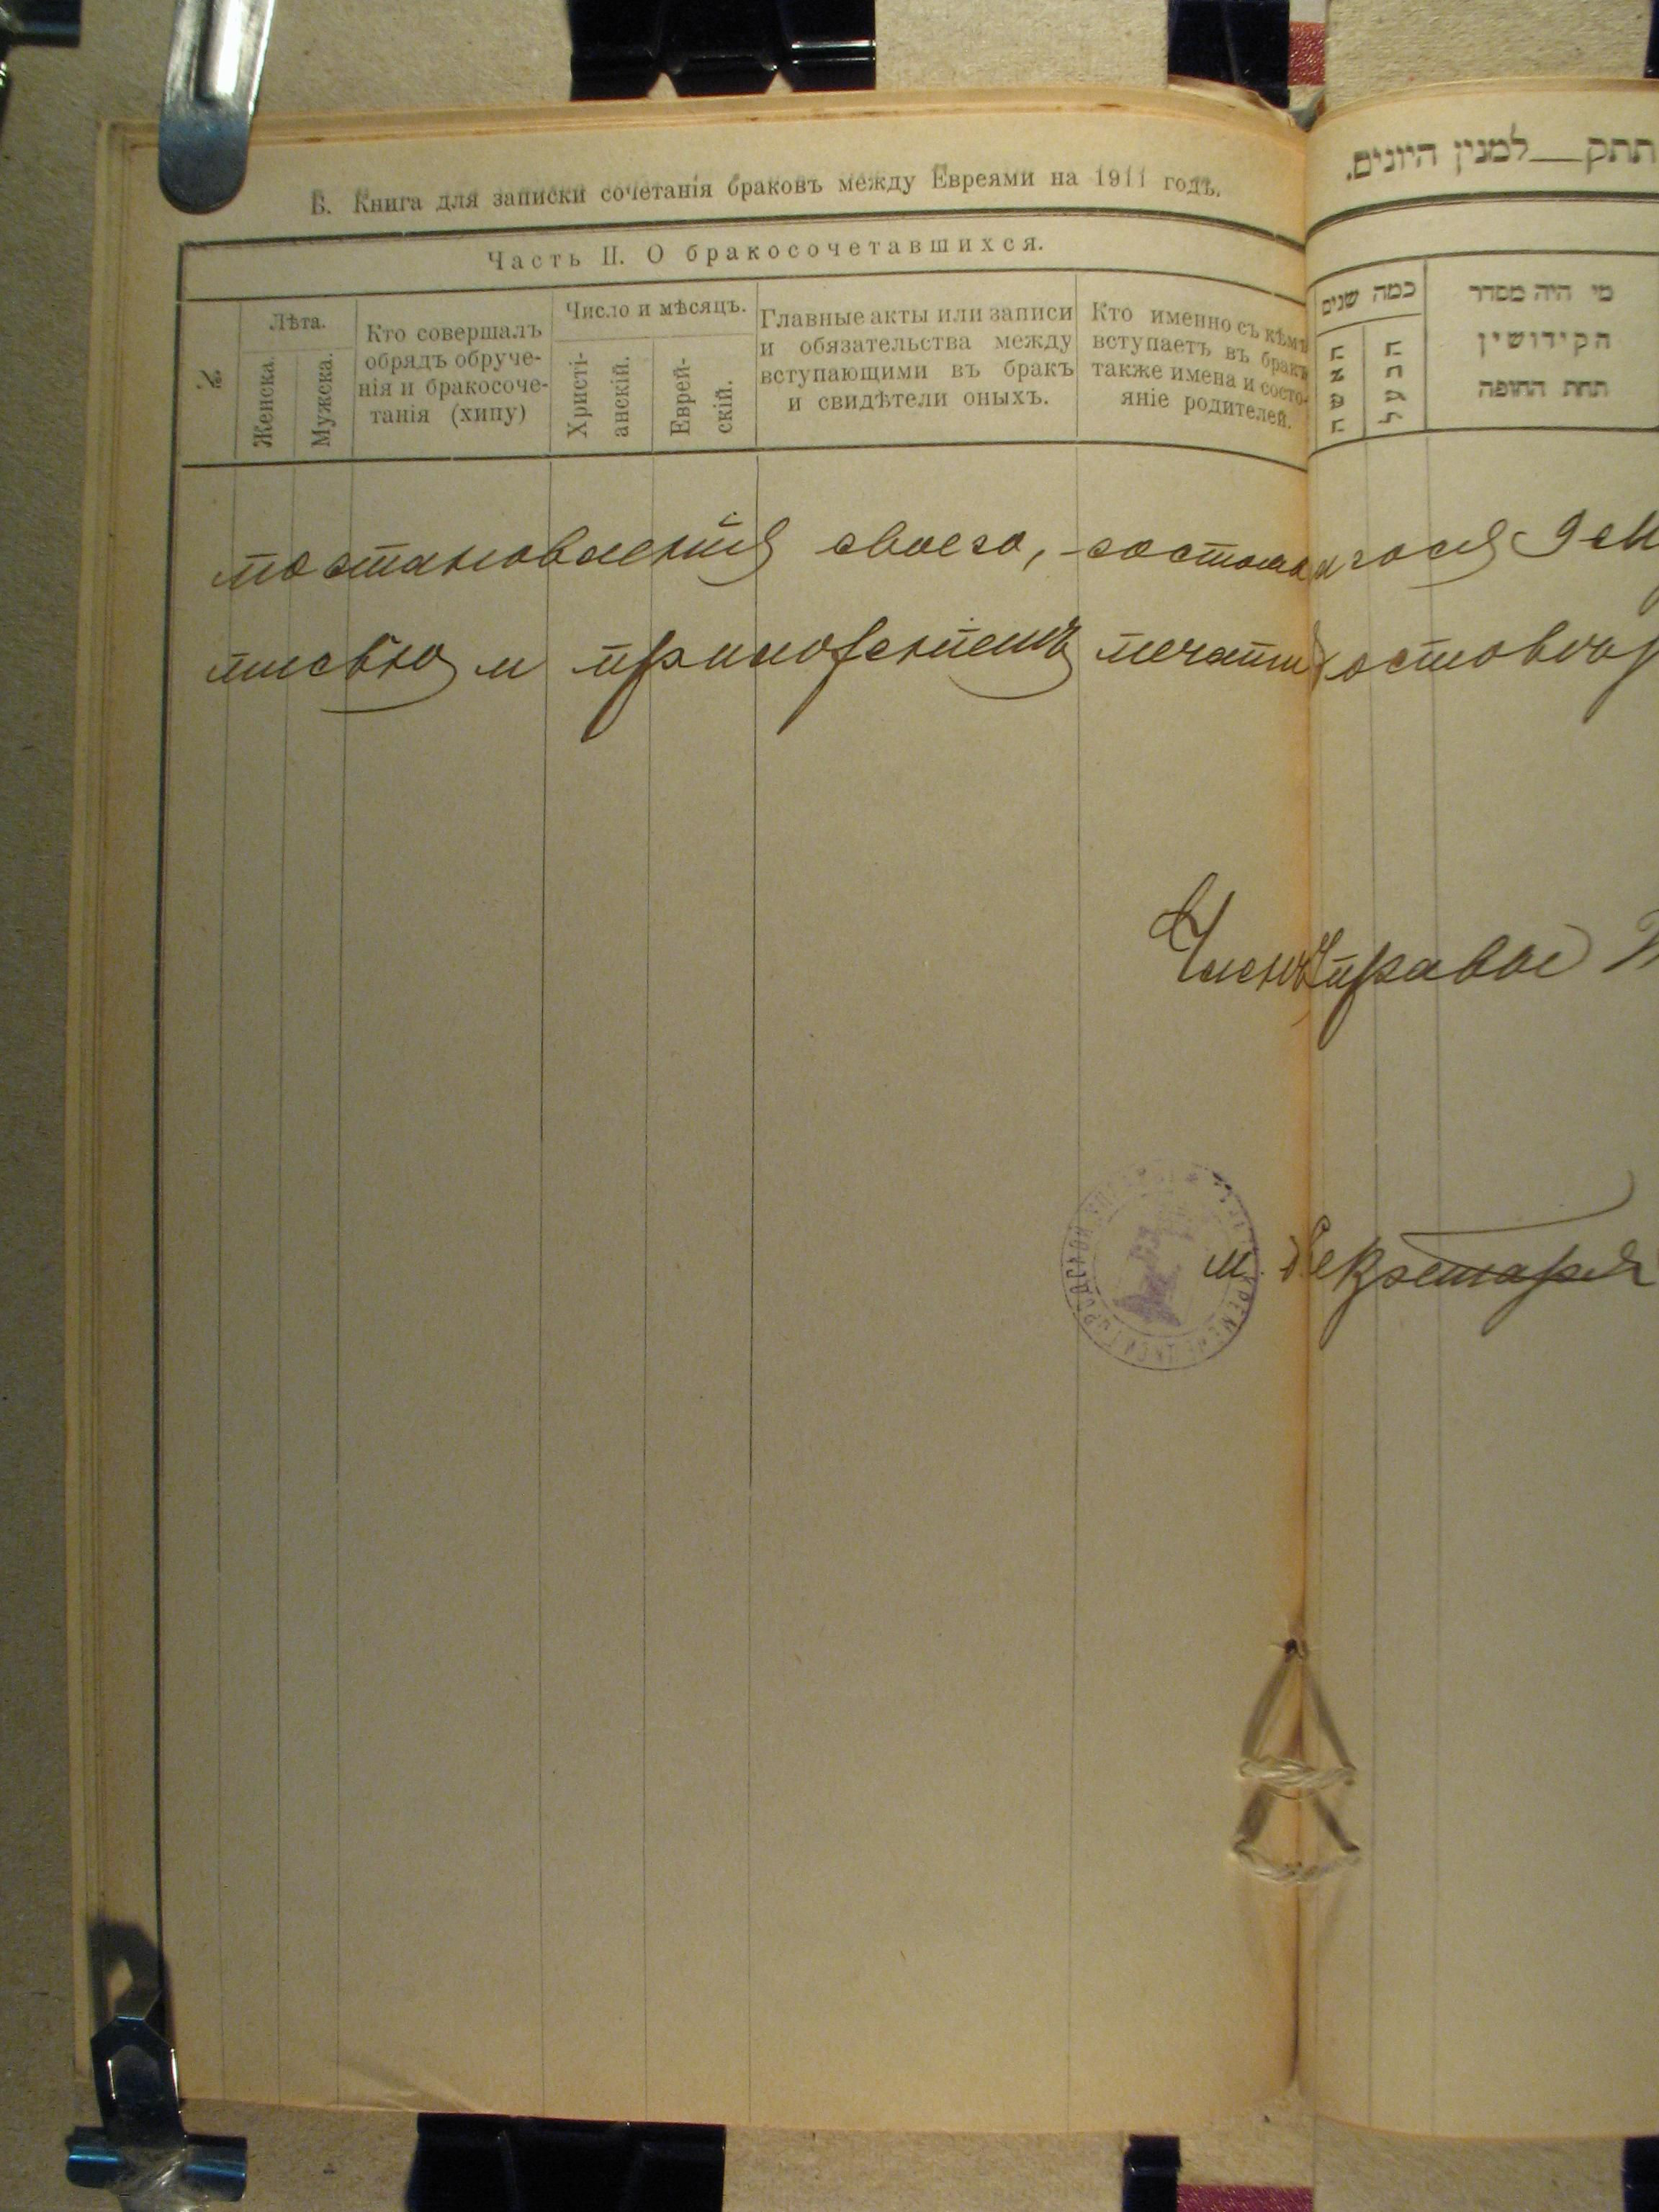 Б. Книга для записки сочетанія браковъ между Евреями на 1911 годъ.
Часть II. О бракосочетавшихся.
№.
Лѣта.
Женска.
Мужска.
Кто совершалъ
обрядъ обруче-
нія и бракосоче-
танія (хипу)
Число и мѣсяцъ.
Христі-
анскій.
Еврей-
скій.
Главные акты или записи
и обязательства между
вступающими въ бракъ
и свидѣтели оныхъ.
Кто именно съ кѣмъ
вступаетъ въ бракъ
также имена и состо-
яніе родителей.
תתק___למנין היונים.
כמה שנים
האשה
הבעל
מי היה מסדר
הקידושין
תחת החופה
постановленія своего, состоявшагося 9
писью и приложеніемъ печати
Членъ Управы
и. Секретаря